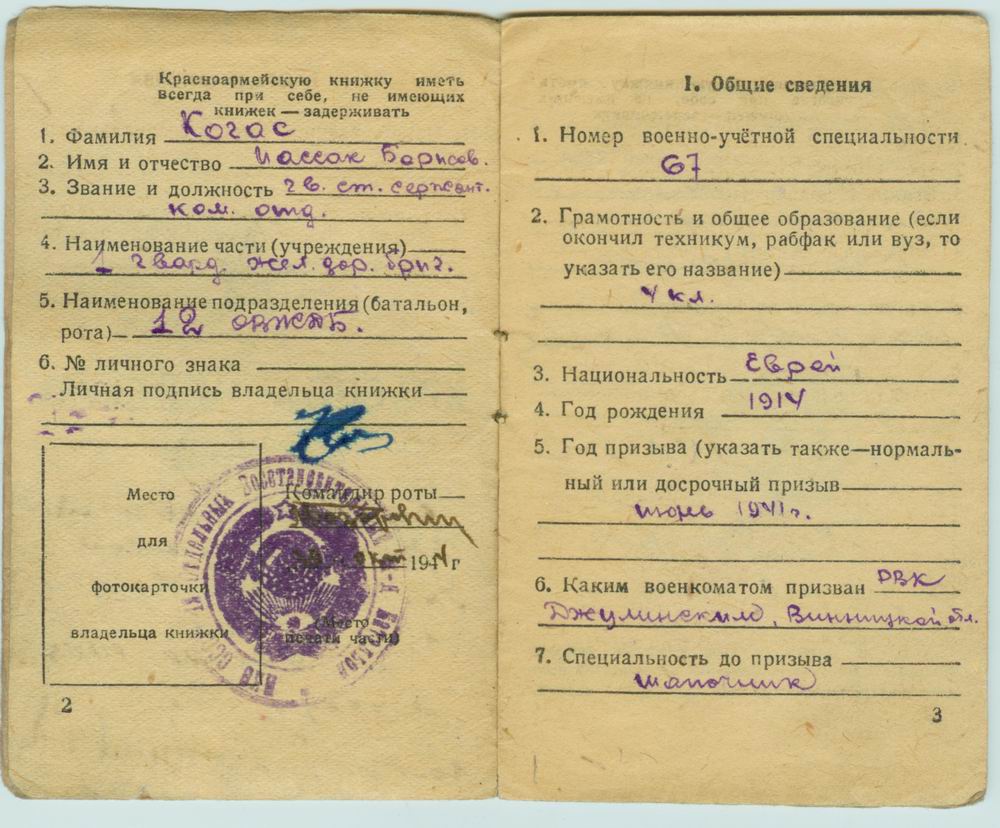 Красноармейскую книжку иметь
всегда при себе, не имеющих
книжек — задерживать
1. Фамилия Когас
2. Имя и отчество Иассак Борисов.
3. Звание и должность гв. ст. сержант.
ком. отд.
4. Наименование части (учреждения)
1 гвард жел. дор. бриг.
5. Наименование подразделения (батальон,
рота) 12 овжДБ.
6. № личного знака
Личная подпись владельца книжки
Место
для
фотокарточки
владельца книжки
Командир роты
194 г
(Место
печати части)
2
I. Общие сведения
1. Номер военно-учётной специальности
67
2. Грамотность и общее образование (если
окончил техникум, рабфак или вуз, то
указать его название)
4 кл.
3. Национальность Еврей
4. Год рождения 1914
5. Год призыва (указать также—нормаль-
ный или досрочный призыв
1941г.
6. Каким военкоматом призван РВК
Джулинским, Винницкой обл.
7. Специальность до призыва
шапочник
3